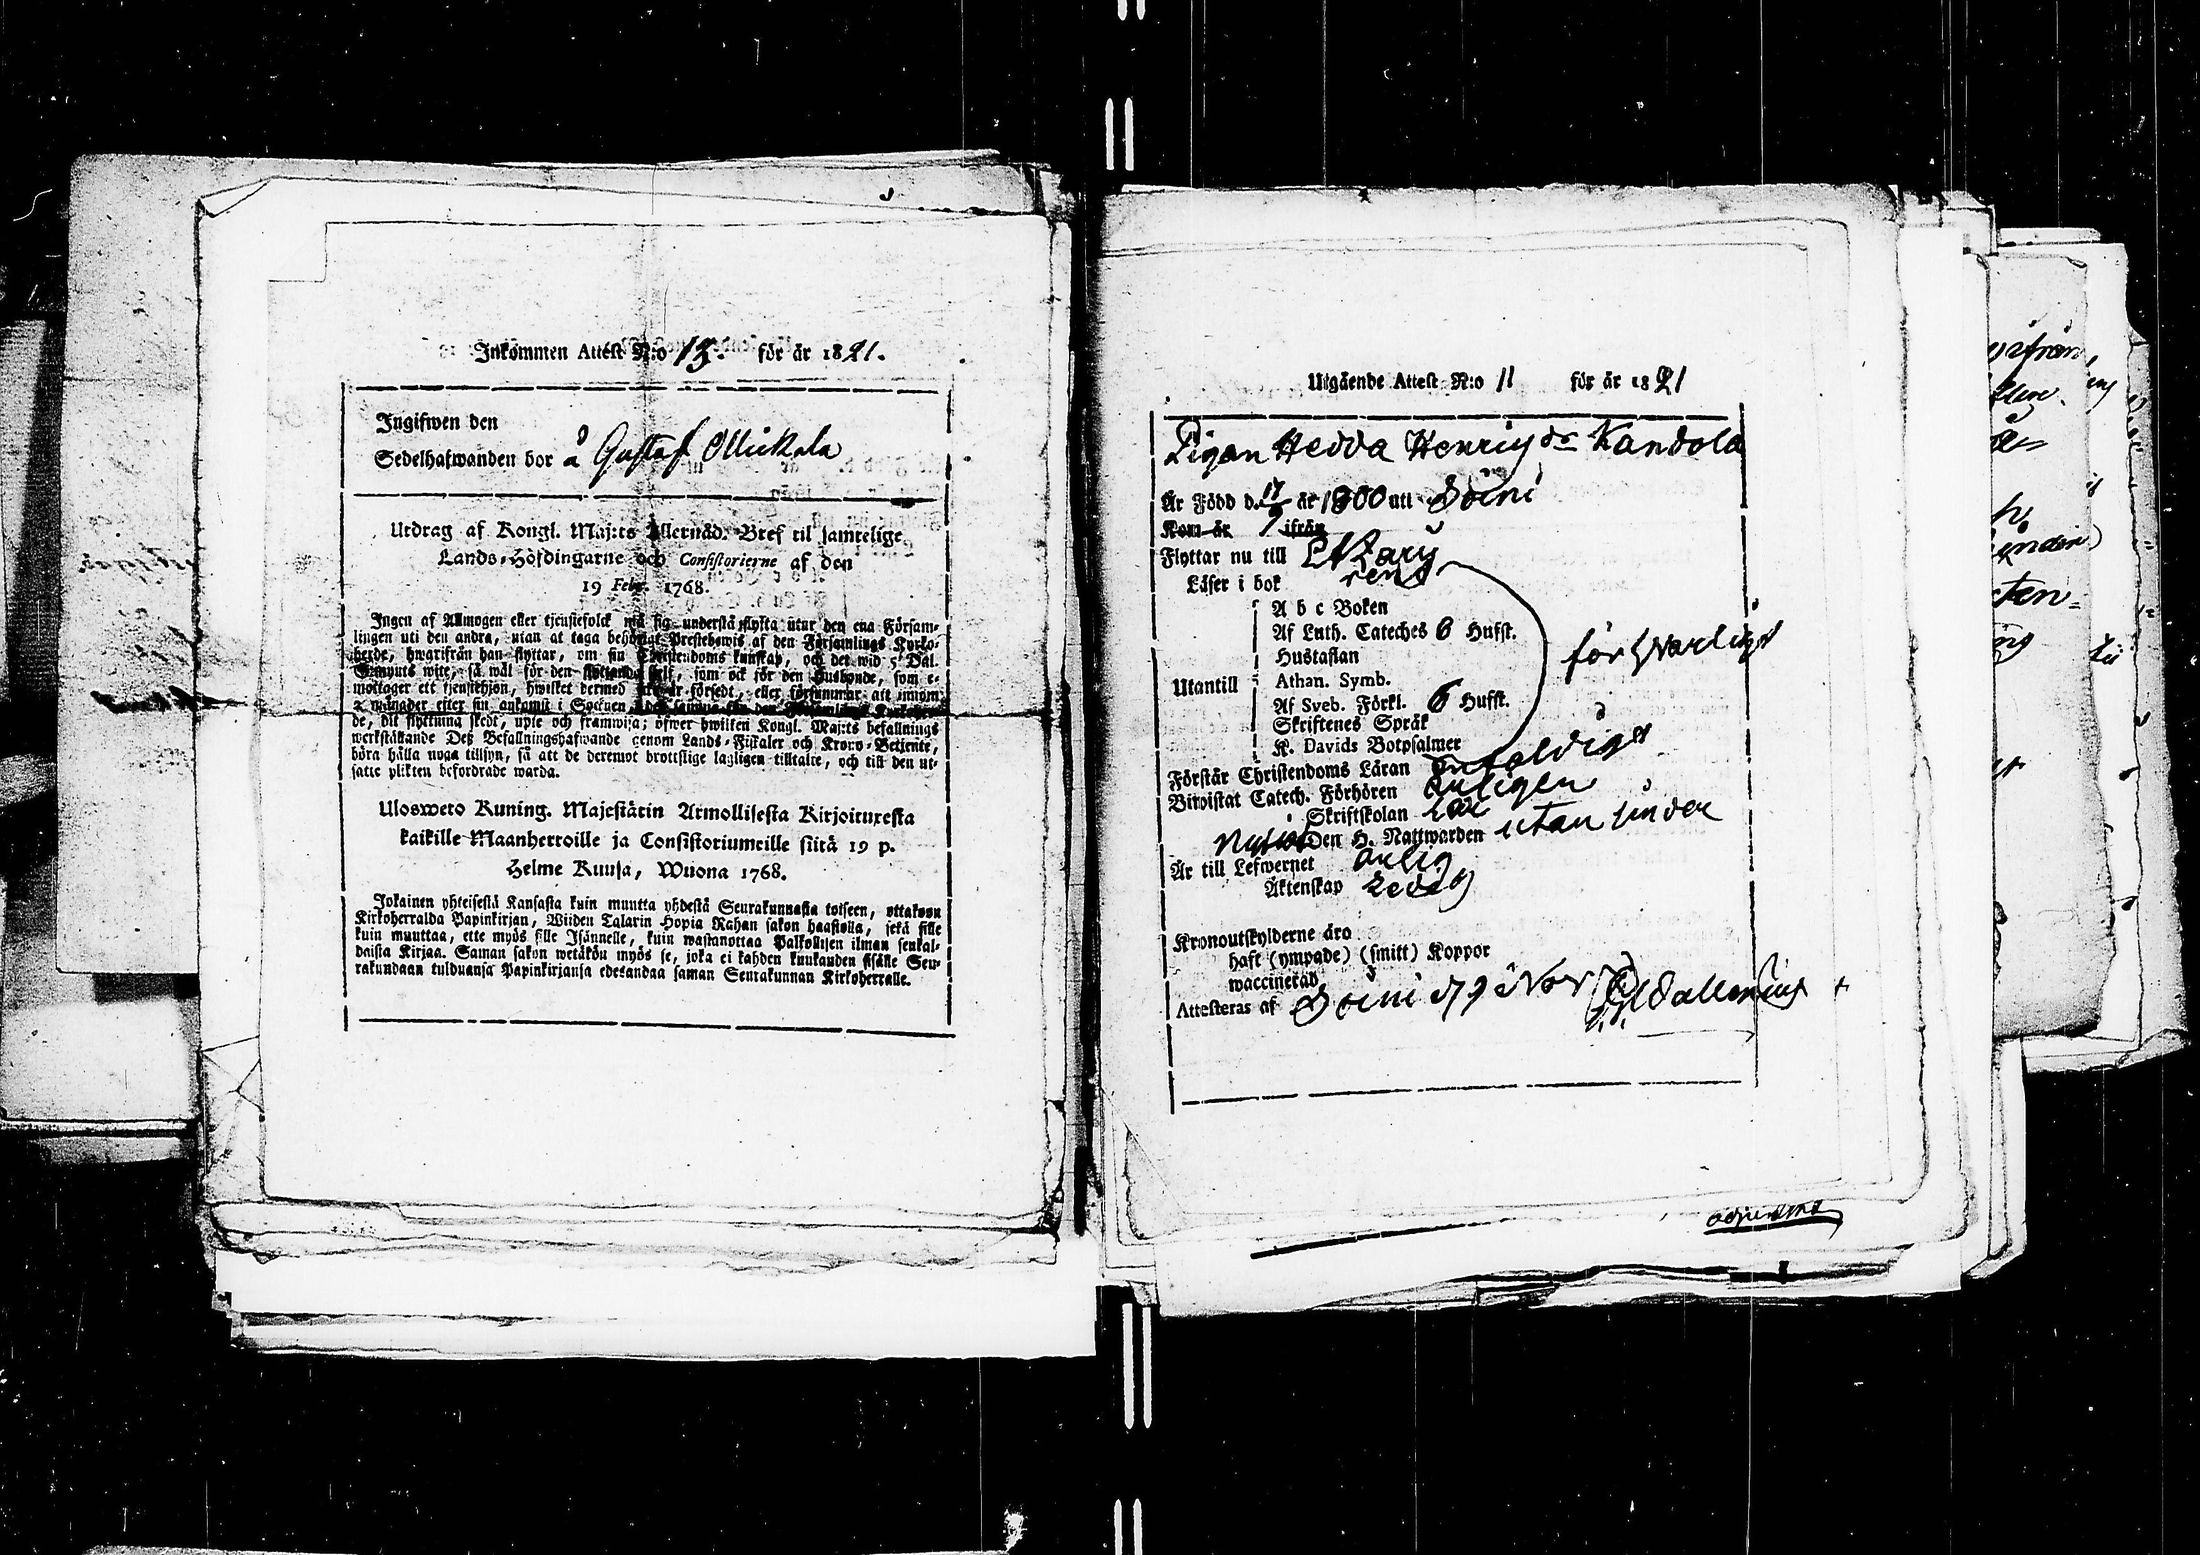 Inkommen Attest N:o 13. för år 1821.
Ingifwen den
Sedelhafwanden bor å Gustaf Mickala
Utdrag af Kongl. Maj:ts Allernåd. Bref til samtelige
Lands-Höfdingarne och Consistorierne af den
19 Febr. 1768.
Ingen af Allmogen eller tjenstefolck må sig understå flytta utur den ena Försam-
lingen uti den andra, utan at taga behörigt Prestebewis af den Församlings Kyrko-
herde, hwarifrån han flyttar, om sin Christendoms kunskap, och det wid 5 Dal.
Silfmynts wite, så wäl för den flyttande self, som ock för den Husbonde, som e-
mottager ett tjenstehjon, hwilket dermed icke är försedt, eller försummar att innom
2 månader efter sin ankomst i Socknen, det samma för den Församlings Kyrkoher-
de, dit flyttning skedt, upte och framwisa; öfwer hwilken Kongl. Maj:ts befallnings
werkställande Deß Befallningshafwande genom Lands-Fiskaler och Krono-Betjente,
böra hålla noga tillsyn, så att de deremot brottslige lagligen tilltalte, och till den ut-
satte plikten befordrade warda.
Uloswető Kuning. Majestätin Armollisesta Kirjoituxesta
kaikille Maanherroille ja Consistoriumeille siitä 19 p.
Helme Kuusa, Wuona 1768.
Jokainen yhteisestä Kansasta kuin muutta yhdestä Seurakunnasta toiseen, ottakoon
Kirkoherralda Papinkirjan, Wiiden Talarin Hopia Rahan sakon haastolla, sekä sille
kuin muuttaa, ette myös sille Isännelle, kuin wastanottaa Palkollisen ilman senkal-
daista Kirjaa. Saman sakon wetäkön myös se, joka ei kahden kuukauden sisälle Seu-
rakundaan tulduansa Papinkirjansa edesandaa saman Seurakunnan Kirkoherralle.
Utgående Attest N:o 11 för år 1821
Pigan Hedda Henricsdr Kandola
Är Född d. 17/9 år 1800 uti Soini
Kom år ifrån
Flyttar nu till Etzäry
Läser i bok rent
A b c Boken
Af Luth. Cateches 6 Hufst.
Hustaflan
Utantill Athan. Symb.
Af Sveb. Förkl. 6 Hufst.
Skriftenes Språk
K. Davids Botpsalmer
försvarligt
Förstår Christendoms Läran enfaldigt
Biwistat Catech. Förhören ärligen
Skriftskolan
Nyttjat Den H. Nattwarden utan hinder
Är till Lefwernet ärlig
Äktenskap Ledig
Kronoutskylderne äro
haft (ympade) (smitt) Koppor
waccinerad
Attesteras af Soini d 9 Nov